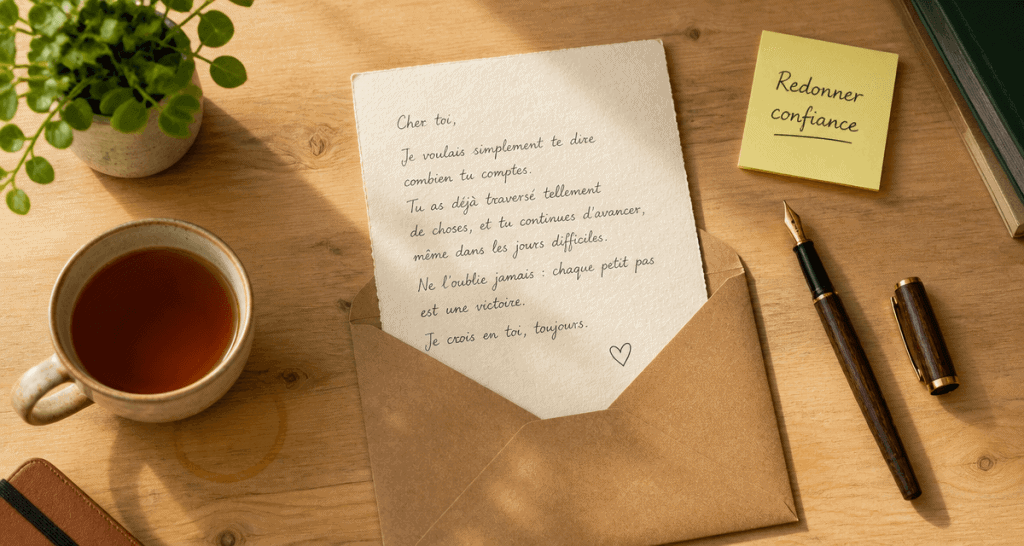 Cher toi,
Je voulais simplement te dire
combien tu comptes.
Tu as déjà traversé tellement
de choses, et tu continues d'avancer,
même dans les jours difficiles.
Ne l'oublie jamais : chaque petit pas
est une victoire.
Je crois en toi, toujours.
Redonner
confiance